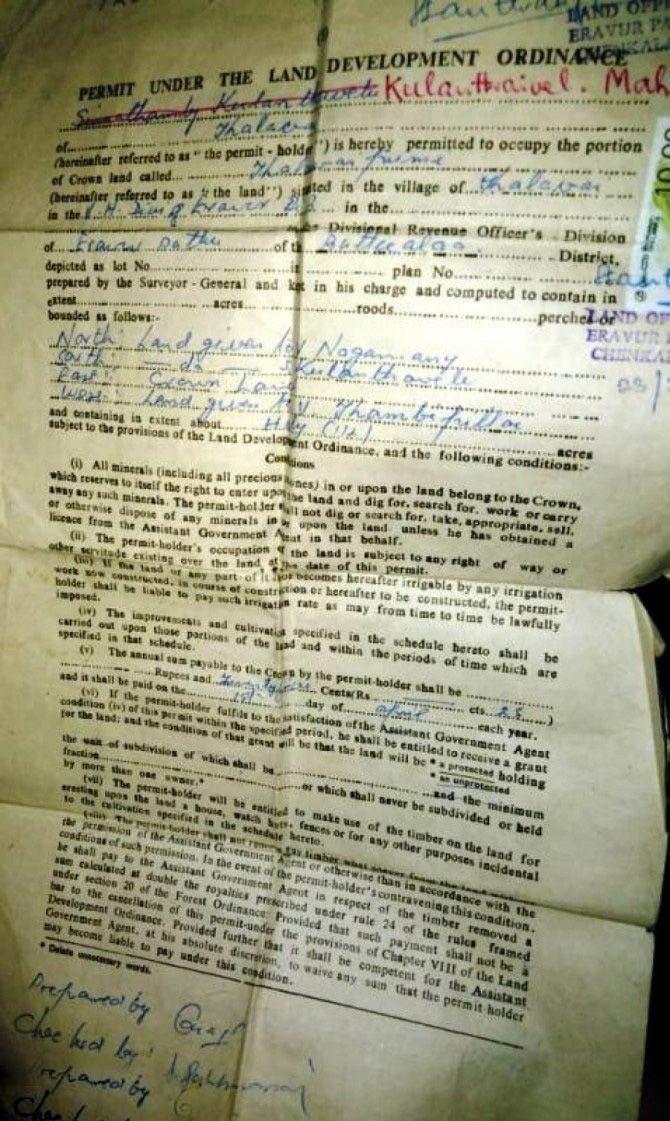 LAND OFF
ERAVUR P
CHENKAL
PERMIT UNDER THE LAND DEVELOPMENT ORDINANCE
Kulanthaivel. Mah
of
(hereinafter referred to as "the permit-holder") is hereby permitted to occupy the portion
of Crown land called
(hereinafter referred to as "the land") situated in the village of Thalavai
in the in the
Divisional Revenue Officer's Division
of Eravur Pattu of the District,
depicted as lot No. in plan No.
prepared by the Surveyor-General and kept in his charge and computed to contain in
extent acres roods perches or
LAND OF
ERAVUR
CHENKA
bounded as follows:-
North: Land given to Nagamany
South: do Kulanthavele
East: Crown Land
West: Land given to Thambipillai
and containing in extent about Half (1/2) acres
subject to the provisions of the Land Development Ordinance, and the following conditions:-
Conditions
(i) All minerals (including all precious stones) in or upon the land belong to the Crown,
which reserves to itself the right to enter upon the land and dig for, search for, work or carry
away any such minerals. The permit-holder shall not dig or search for, take, appropriate, sell,
or otherwise dispose of any minerals in or upon the land unless he has obtained a
licence from the Assistant Government Agent in that behalf.
(ii) The permit-holder's occupation of the land is subject to any right of way or
other servitude existing over the land at the date of this permit.
(iii) If the land or any part of it is or becomes hereafter irrigable by any irrigation
work now constructed, in course of construction or hereafter to be constructed, the permit-
holder shall be liable to pay such irrigation rate as may from time to time be lawfully
imposed.
(iv) The improvements and cultivation specified in the schedule hereto shall be
carried out upon those portions of the land and within the periods of time which are
specified in that schedule.
(v) The annual sum payable to the Crown by the permit-holder shall be
Rupees and Twenty five Cents/Rs cts. 25 )
and it shall be paid on the day of April each year.
(vi) If the permit-holder fulfils to the satisfaction of the Assistant Government Agent
condition (iv) of this permit within the specified period, he shall be entitled to receive a grant
for the land; and the condition of that grant will be that the land will be * a protected holding
* an unprotected
the unit of subdivision of which shall be and the minimum
fraction or which shall never be subdivided or held
by more than one owner.*
(vii) The permit-holder will be entitled to make use of the timber on the land for
erecting upon the land a house, watch huts, fences or for any other purposes incidental
to the cultivation specified in the schedule hereto.
(viii) The permit-holder shall not remove any timber
the permission of the Assistant Government Agent or otherwise than in accordance with the
conditions of such permission. In the event of the permit-holder's contravening this condition,
he shall pay to the Assistant Government Agent in respect of the timber removed a
sum calculated at double the royalties prescribed under rule 24 of the rules framed
under section 20 of the Forest Ordinance: Provided that such payment shall not be a
bar to the cancellation of this permit under the provisions of Chapter VIII of the Land
Development Ordinance. Provided further that it shall be competent for the Assistant
Government Agent, at his absolute discretion, to waive any sum that the permit holder
may become liable to pay under this condition.
* Delete unnecessary words.
Prepared by
Checked by
Prepared by
Checked by